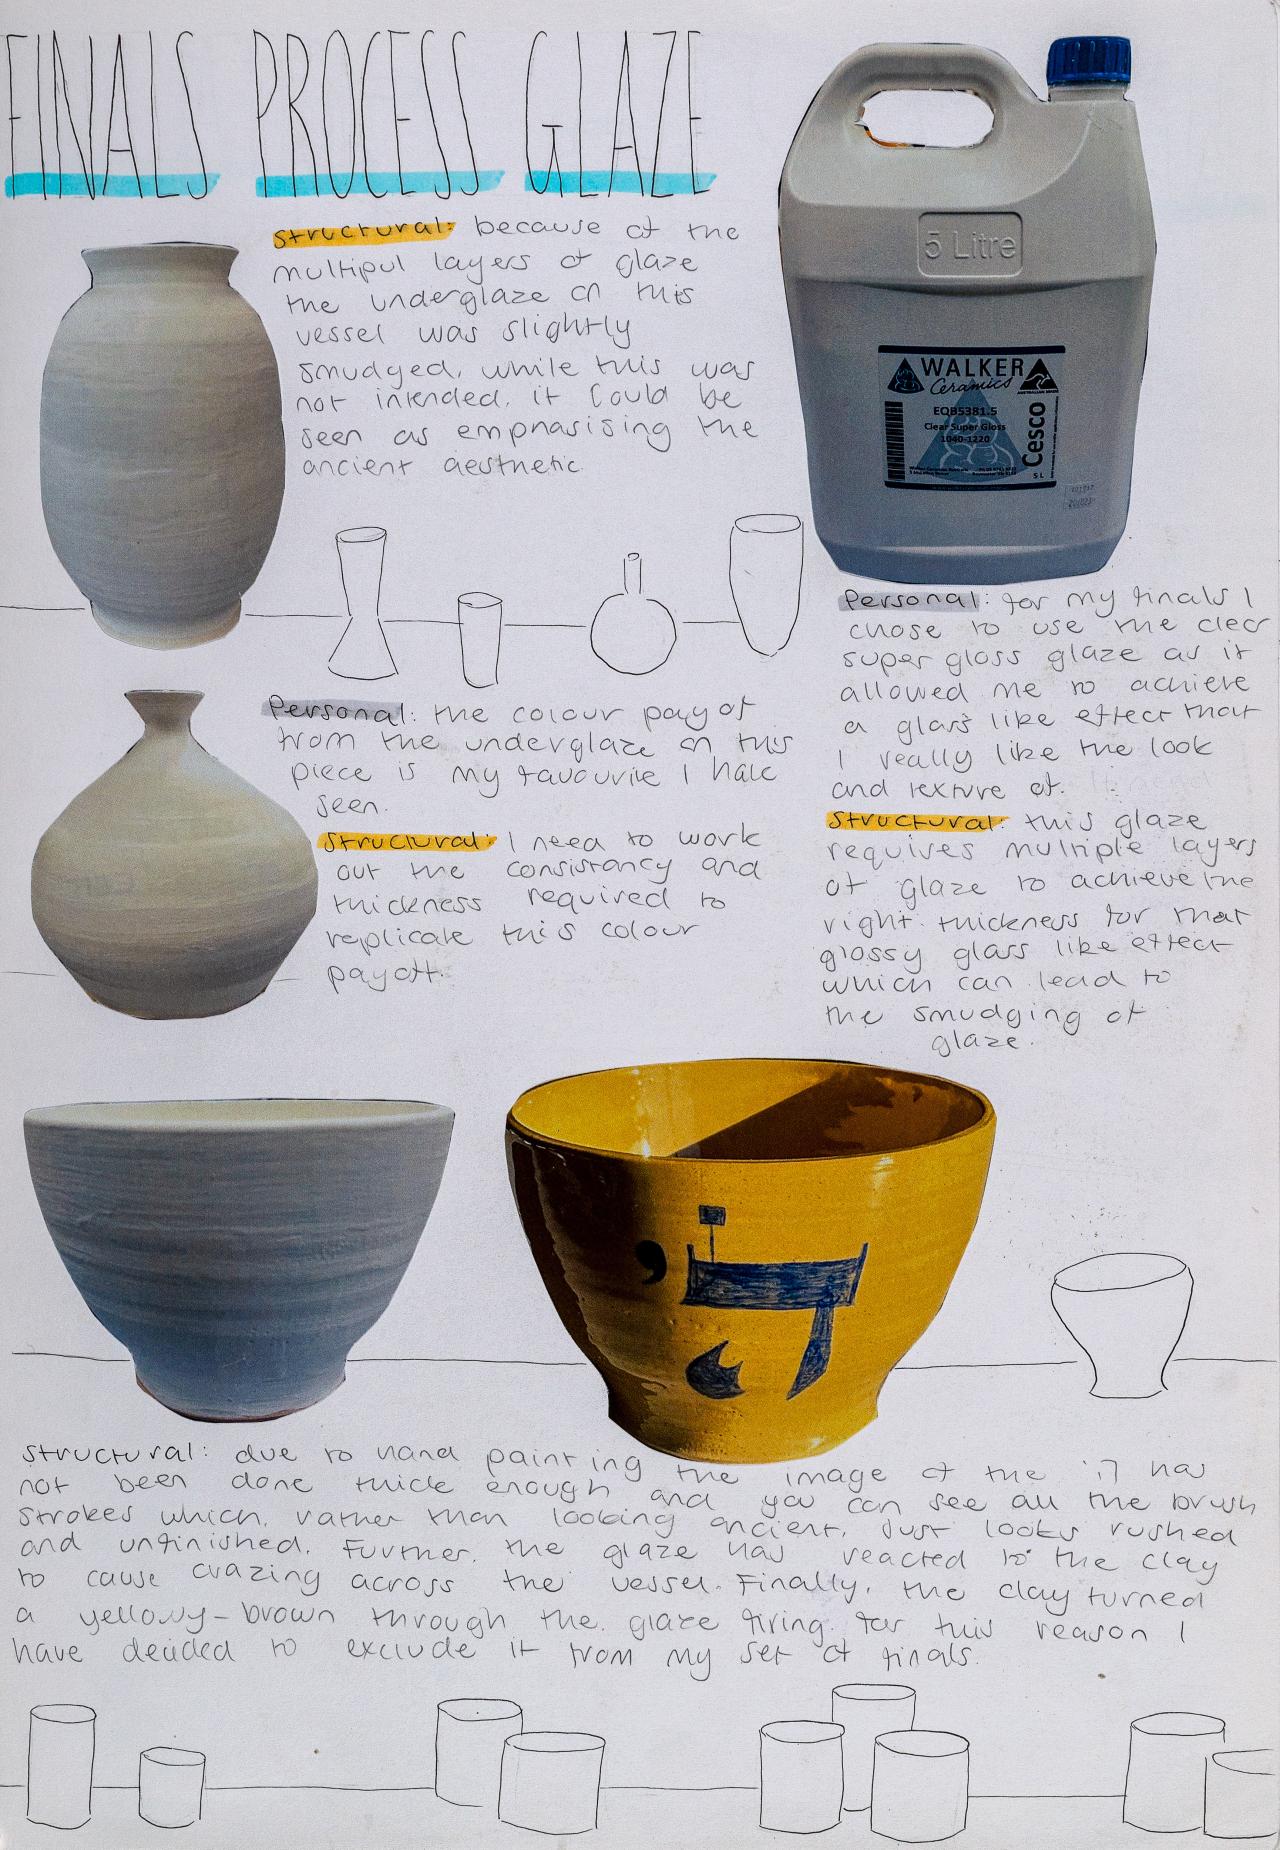 FINALS PROCESS GLAZE
Structural: because of the
multipul layers of glaze
the underglaze on this
vessel was slightly
smudged, while this was
not intended, it could be
seen as emphasising the
ancient aesthetic.
5 Litre
WALKER
Ceramics
EQB5381.5
Clear Super Gloss
1040-1220
Cesco
5 L
Personal: for my finals I
chose to use the clear
super gloss glaze as it
allowed me to achieve
a glass like effect that
I really like the look
and texture of.
Structural: this glaze
requires multiple layers
of glaze to achieve the
right thickness for that
glossy glass like effect
which can lead to
the smudging of
glaze.
Personal: the colour pay of
from the underglaze on this
piece is my favourite I have
seen.
Structural: I need to work
out the consistancy and
thickness required to
replicate this colour
payoff.
Structural: due to hand painting the image of the 'ק has
not been done thick enough and you can see all the brush
strokes which, rather than looking ancient, just looks rushed
and unfinished. Further, the glaze has reacted to the clay
to cause crazing across the vessel. Finally, the clay turned
a yellowy-brown through the glaze firing. for this reason I
have decided to exclude it from my set of finals.